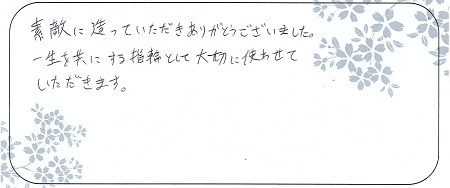 素敵に造っていただきありがとうございました。
一生を共にする指輪として大切に使わせて
いただきます。